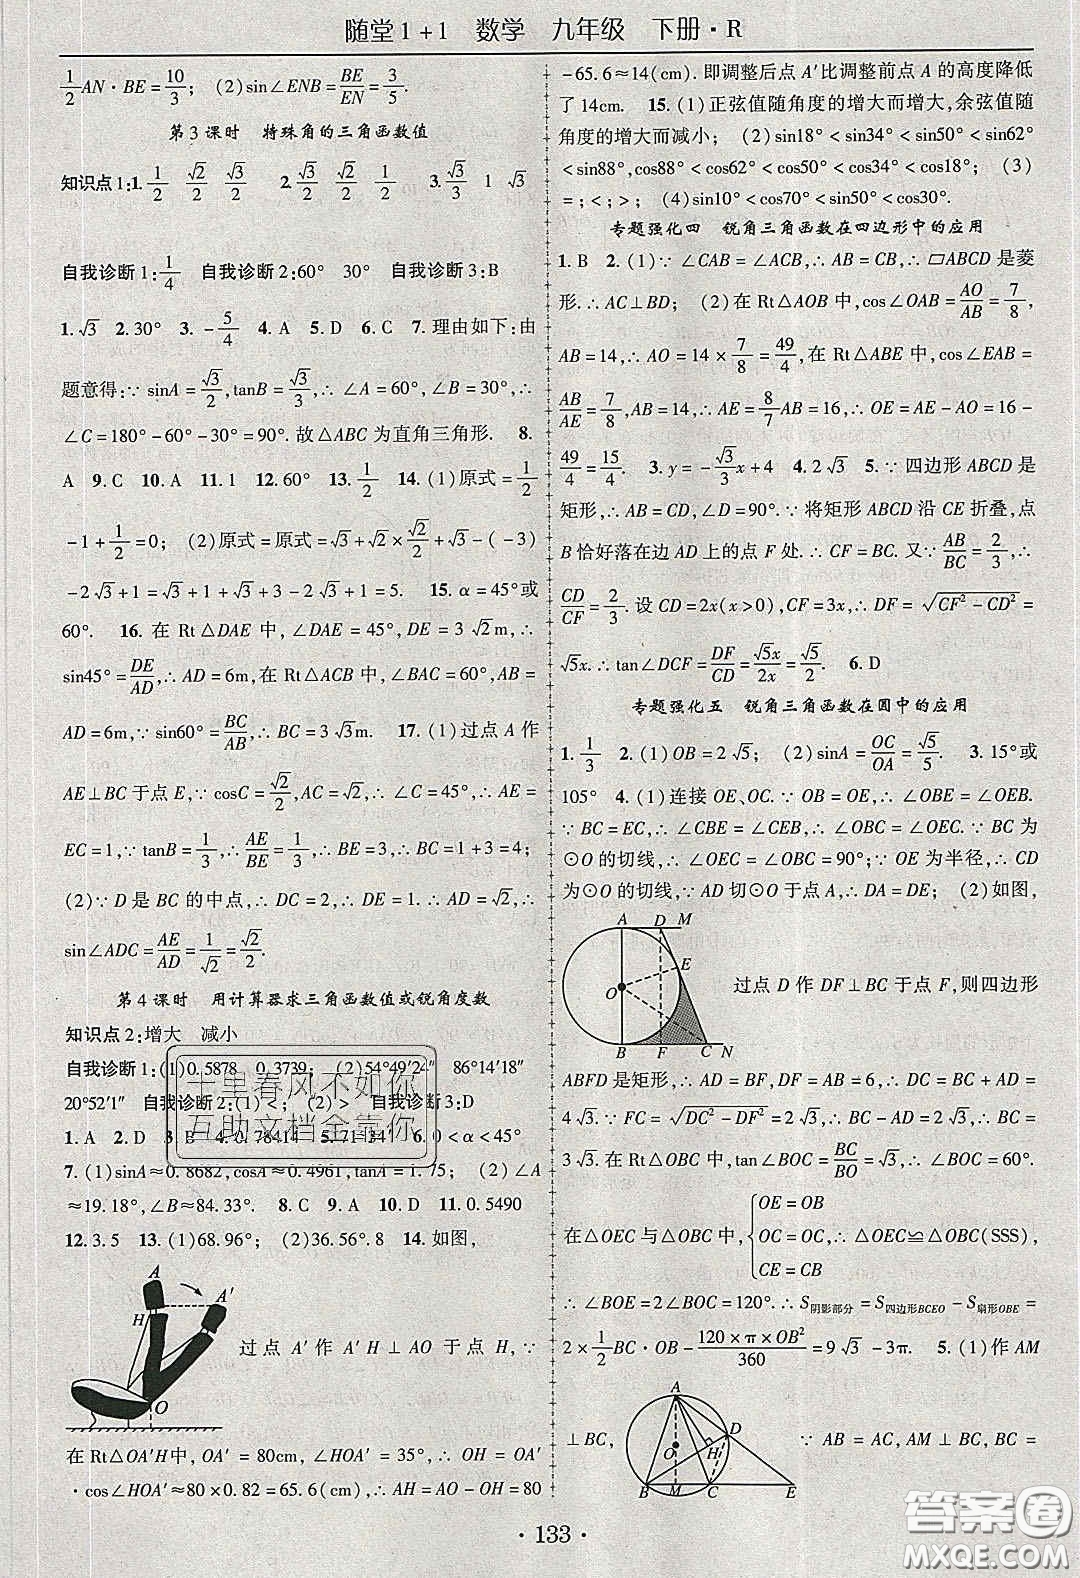 随堂1+1 数学 九年级 下册·R
1/2 AN·BE=10/3；(2)sin∠ENB=BE/EN=3/5.
第3课时 特殊角的三角函数值
知识点1:1. 1/2 √2/2 √3/2 2. √3/2 √2/2 1/2 3. √3/3 1 √3
自我诊断1:1/4 自我诊断2:60° 30° 自我诊断3:B
1.√3 2.30° 3.-5/4 4.A 5.D 6.C 7.理由如下:由
题意得:∵sinA=√3/2,tanB=√3/3,∴∠A=60°,∠B=30°,∴
∠C=180°-60°-30°=90°.故△ABC为直角三角形. 8.
A 9.C 10.A 11.1 12.60° 13.1/2 14.(1)原式=1/2
-1+1/2=0；(2)原式=原式=√3+√2×√2/2+√3-(-3)
-2√3+1=√3+1+√3+3-2√3+1=5. 15.α=45°或
60°. 16.在Rt△DAE中,∠DAE=45°,DE=3√2m,∴
sin45°=DE/AD,∴AD=6m,在Rt△ACB中,∠BAC=60°,AB=
AD=6m,∵sin60°=BC/AB,∴BC=3√3m. 17.(1)过点A作
AE⊥BC于点E,∵cosC=√2/2,AC=√2,∴∠C=45°,∴AE=
EC=1,∵tanB=1/3,∴AE/BE=1/3,∴BE=3,∴BC=1+3=4；
(2)∵D是BC的中点,∴DC=2,∴DE=1.∴AD=√2,∴
sin∠ADC=AE/AD=1/√2=√2/2.
第4课时 用计算器求三角函数值或锐角度数
知识点2:增大 减小
自我诊断1:(1)0.5878 0.3739；(2)54°49′24″ 86°14′18″
20°52′1″ 自我诊断2:(1)<；(2)> 自我诊断3:D
1.A 2.D 3.B 4.0.78414 5.71°34′ 6.0<α<45°
7.(1)sinA≈0.8682,cosA≈0.4961,tanA≈1.75；(2)∠A
≈19.18°,∠B≈84.33°. 8.C 9.A 10.D 11.0.5490
12.3.5 13.(1)68.96°；(2)36.56°.8 14.如图,
A
A′
H
O
过点A′作A′H⊥AO于点H,∵
在Rt△OA′H中,OA′=80cm,∠HOA′=35°,∴OH=OA′
·cos∠HOA′≈80×0.82=65.6(cm),∴AH=AO-OH=80
-65.6≈14(cm).即调整后点A′比调整前点A的高度降低
了14cm. 15.(1)正弦值随角度的增大而增大,余弦值随
角度的增大而减小；(2)sin18°<sin34°<sin50°<sin62°
<sin88°,cos88°<cos62°<cos50°<cos34°<cos18°；(3)
=；<；>；(4)sin10°<cos70°<sin50°<cos30°.
专题强化四 锐角三角函数在四边形中的应用
1.B 2.(1)∵∠CAB=∠ACB,∴AB=CB,∴▱ABCD是菱
形.∴AC⊥BD；(2)在Rt△AOB中,cos∠OAB=AO/AB=7/8,
AB=14,∴AO=14×7/8=49/4,在Rt△ABE中,cos∠EAB=
AB/AE=7/8,AB=14,∴AE=8/7AB=16,∴OE=AE-AO=16-
49/4=15/4. 3.y=-√3/3x+4 4.2√3 5.∵四边形ABCD是
矩形,∴AB=CD,∠D=90°.∵将矩形ABCD沿CE折叠,点
B恰好落在边AD上的点F处.∴CF=BC.又∵AB/BC=2/3,∴
CD/CF=2/3.设CD=2x(x>0),CF=3x,∴DF=√(CF²-CD²)=
√5x.∴tan∠DCF=DF/CD=√5x/2x=√5/2. 6.D
专题强化五 锐角三角函数在圆中的应用
1.1/3 2.(1)OB=2√5；(2)sinA=OC/OA=√5/5. 3.15°或
105° 4.(1)连接OE、OC.∵OB=OE,∴∠OBE=∠OEB.
∵BC=EC,∴∠CBE=∠CEB,∴∠OBC=∠OEC.∵BC为
⊙O的切线,∴∠OEC=∠OBC=90°；∵OE为半径,∴CD
为⊙O的切线,∵AD切⊙O于点A,∴DA=DE；(2)如图,
A D M
E
O
B F C N
过点D作DF⊥BC于点F,则四边形
ABFD是矩形,∴AD=BF,DF=AB=6,∴DC=BC+AD=
4√3.∵FC=√(DC²-DF²)=2√3,∴BC-AD=2√3,∴BC=
3√3.在Rt△OBC中,tan∠BOC=BC/BO=√3,∴∠BOC=60°.
在△OEC与△OBC中,{OE=OB OC=OC,∴△OEC≌△OBC(SSS), CE=CB
∴∠BOE=2∠BOC=120°.∴S阴影部分=S四边形BCEO-S扇形OBE=
2×1/2BC·OB-120×π×OB²/360=9√3-3π. 5.(1)作AM
⊥BC,
A
D
O H
B M C E
∵AB=AC,AM⊥BC,BC=
·133·
十里春风不如你
互助文档全靠你
答案圈
MXQE.COM